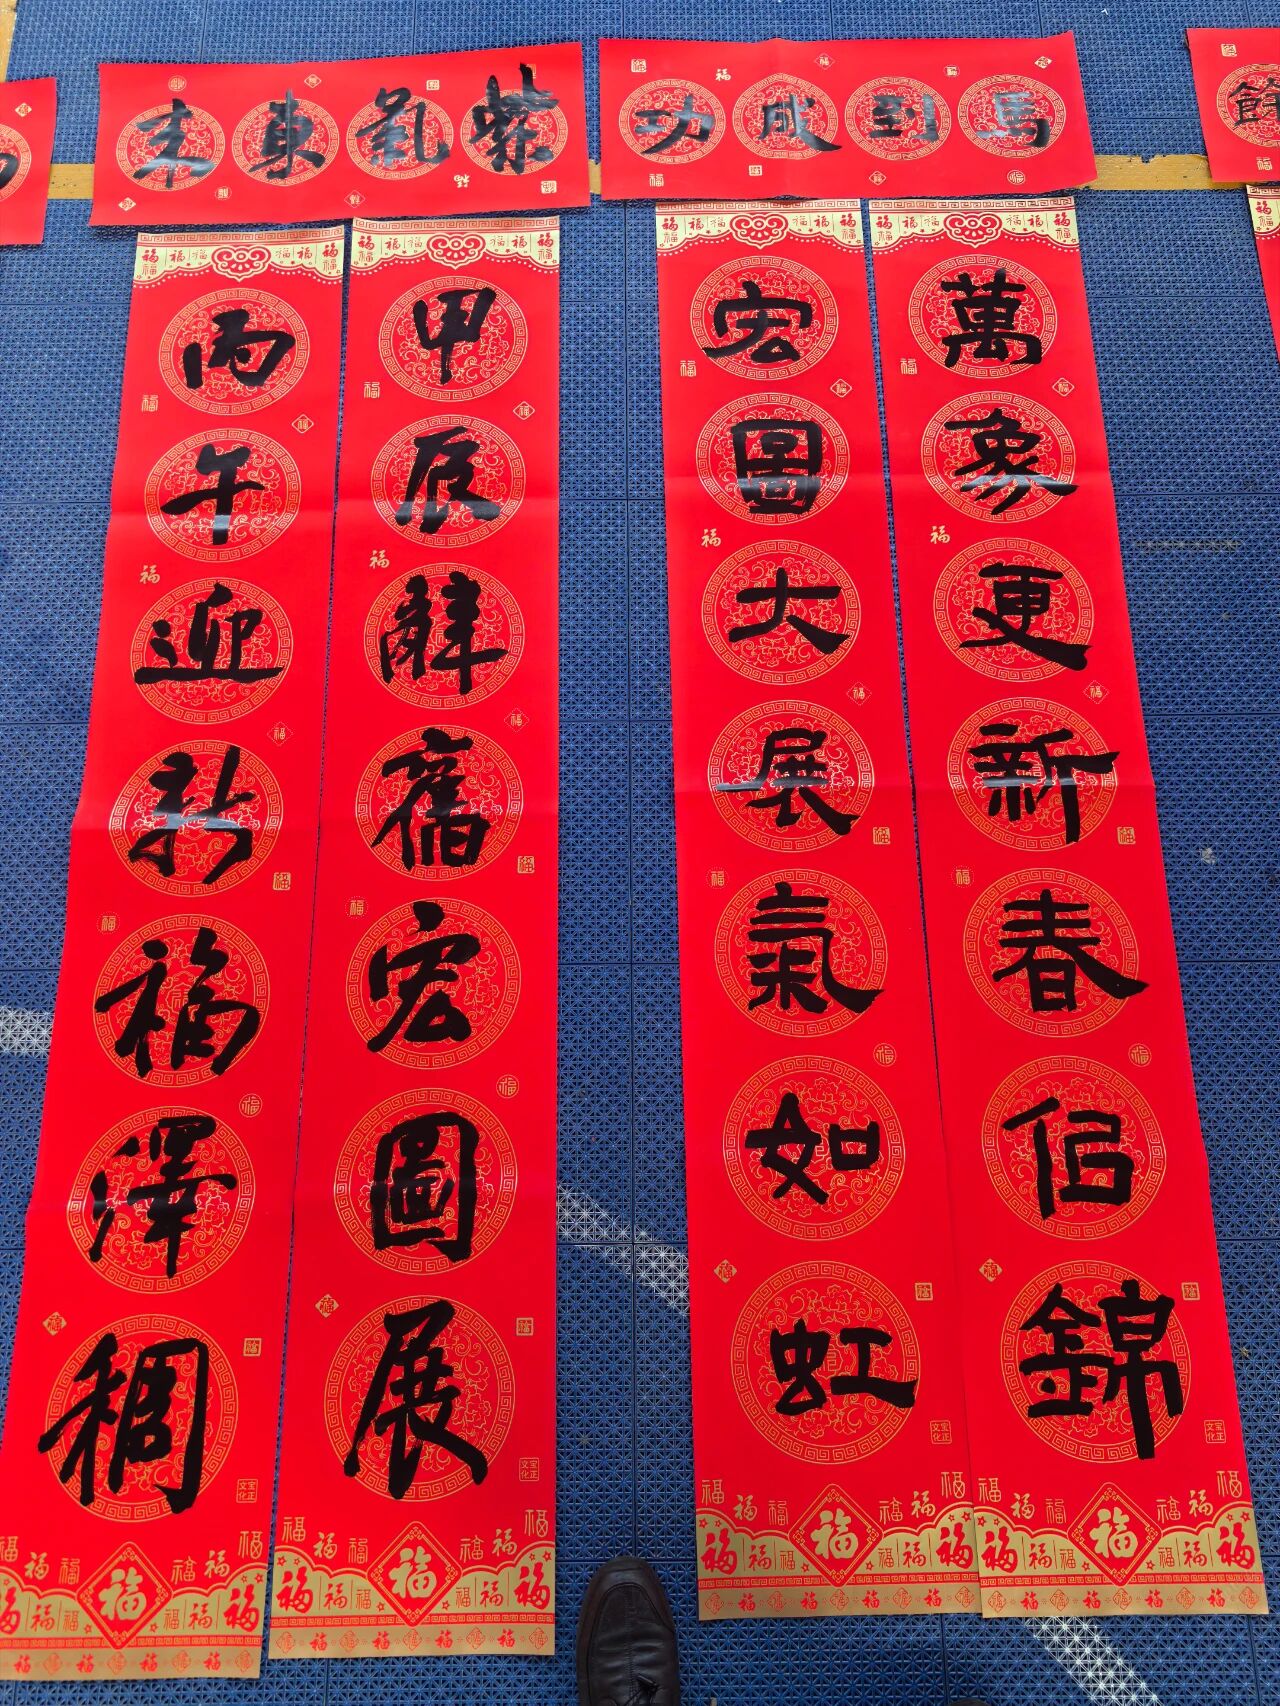 餘
馬到成功
萬象更新春佀錦
宏圖大展氣如虹
紫氣東来
甲辰辭舊宏圖展
丙午迎新福澤稠
福
宝正文化